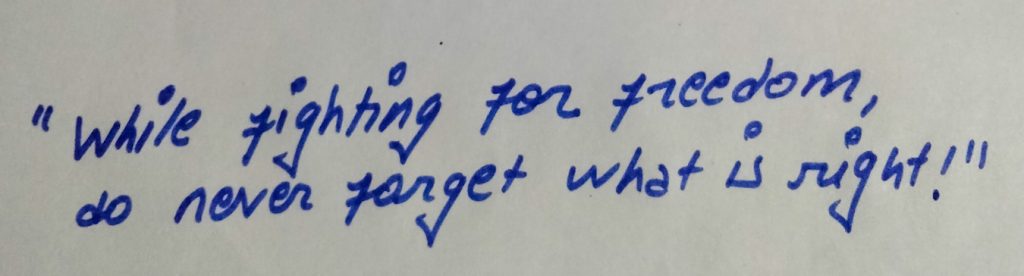 "While fighting for freedom,
do never forget what is right!"